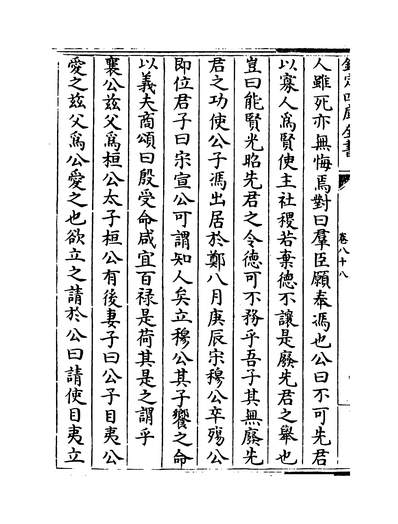 欽定四庫全書
卷八十八
人雖死亦無悔焉對曰羣臣願奉馮也公曰不可先君
以寡人爲賢使主社稷若棄德不讓是廢先君之舉也
豈曰能賢光昭先君之令德可不務乎吾子其無廢先
君之功使公子馮出居於鄭八月庚辰宋穆公卒殤公
即位君子曰宋宣公可謂知人矣立穆公其子饗之命
以義夫商頌曰殷受命咸宜百禄是荷其是之謂乎
襄公兹父爲桓公太子桓公有後妻子曰公子目夷公
愛之兹父爲公愛之也欲立之請於公曰請使目夷立